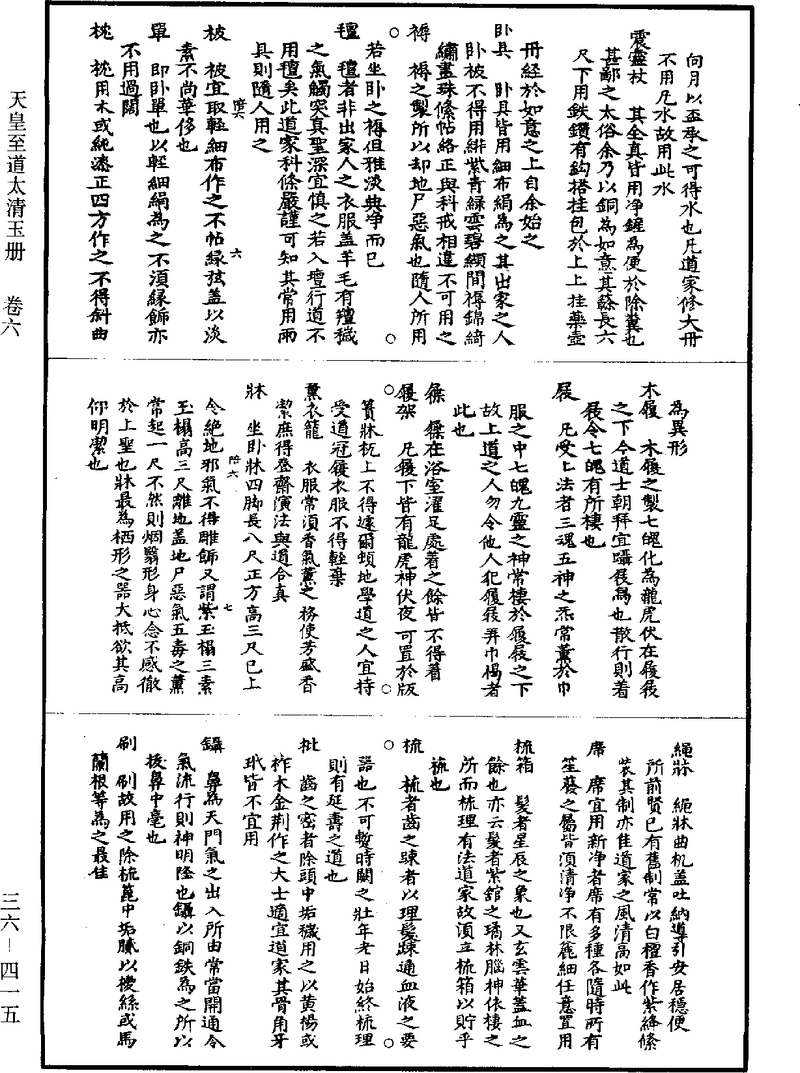 天皇至道太清玉册 卷六
向月以盃承之可得水也凡道家修大丹
不用凡水故用此水
震靈杖 其全真皆用净鏟為便於除糞也
甚鄙之太俗余乃以銅為如意其餘長六
尺下用鉄鑽有鈎搭挂包於上上挂藥壺
冊經於如意之上自余始之
卧具 卧具皆用細布絹為之其出家之人
卧被不得用緋紫青緑雲碧纈間褥錦綺
繡畫珠絛帖絡正與科戒相違不可用之
褥 褥之製所以却地尸惡氣也隨人所用
若坐卧之褥但雅淡典净而已
氊 氊者非出家人之衣服盖羊毛有羶穢
之氣觸突真聖深宜慎之若入壇行道不
用氊矣此道家科條嚴謹可知其常用雨
具則隨人用之
被 被宜取輕細布作之不帖緑弦盖以淡
素不尚華侈也
單 即卧單也以輕細絹為之不須緣飾亦
不用過闊
枕 枕用木或純漆正四方作之不得斜曲
為異形
木履 木履之製七魄化為龍虎伏在履屐
之下今道士朝拜宜躡屐舄也散行則着
屐令七魄有所棲也
屐 凡受上法者三魂五神之炁常薰於巾
服之中七魄九靈之神常棲於履屐之下
故上道之人勿令他人犯履屐弄巾褐者
此也
屧 屧在浴室濯足處着之餘皆不得着
履架 凡履下皆有龍虎神伏夜可置於版
簀牀杌上不得遽爾頓地學道之人宜持
受道冠履衣服不得輕棄
薰衣籠 衣服常須香氣薰之務使芳盛香
潔庶得登齋演法與道合真
牀 坐卧牀四脚長八尺正方高三尺已上
令絶地邪氣不得雕飾又謂紫玉榻三素
玉榻高三尺離地盖地尸惡氣五毒之薰
常起一尺不然則烟翳形身心念不感徹
於上聖也牀最為栖形之器大抵欲其高
仰明潔也
繩牀 繩牀曲杌盖吐納導引安居穩便
所前賢已有舊制常以白檀香作紫絳絛
裝其制亦佳道家之風清高如此
席 席宜用新净者席有多種各隨時所有
笙藤之屬皆須清净不限麄細任意置用
梳箱 髮者星辰之象也又玄雲華蓋血之
餘也亦云髮者紫舘之璚林腦神依棲之
所而梳理有法道家故須立梳箱以貯乎
梳也
梳 梳者齒之疎者以理髮疎通血液之要
器也不可暫時闕之壯年老日始終梳理
則有延壽之道也
枇 齒之密者除頭中垢穢用之以黄楊或
柞木金荆作之大士適宜道家其骨角牙
玳皆不宜用
鑷 鼻為天門氣之出入所由常當開通令
氣流行則神明隆也鑷以銅鉄為之所以
拔鼻中毫也
刷 刷故用之除梳篦中垢膩以椶絲或馬
蘭根等為之最佳
三六－四一五